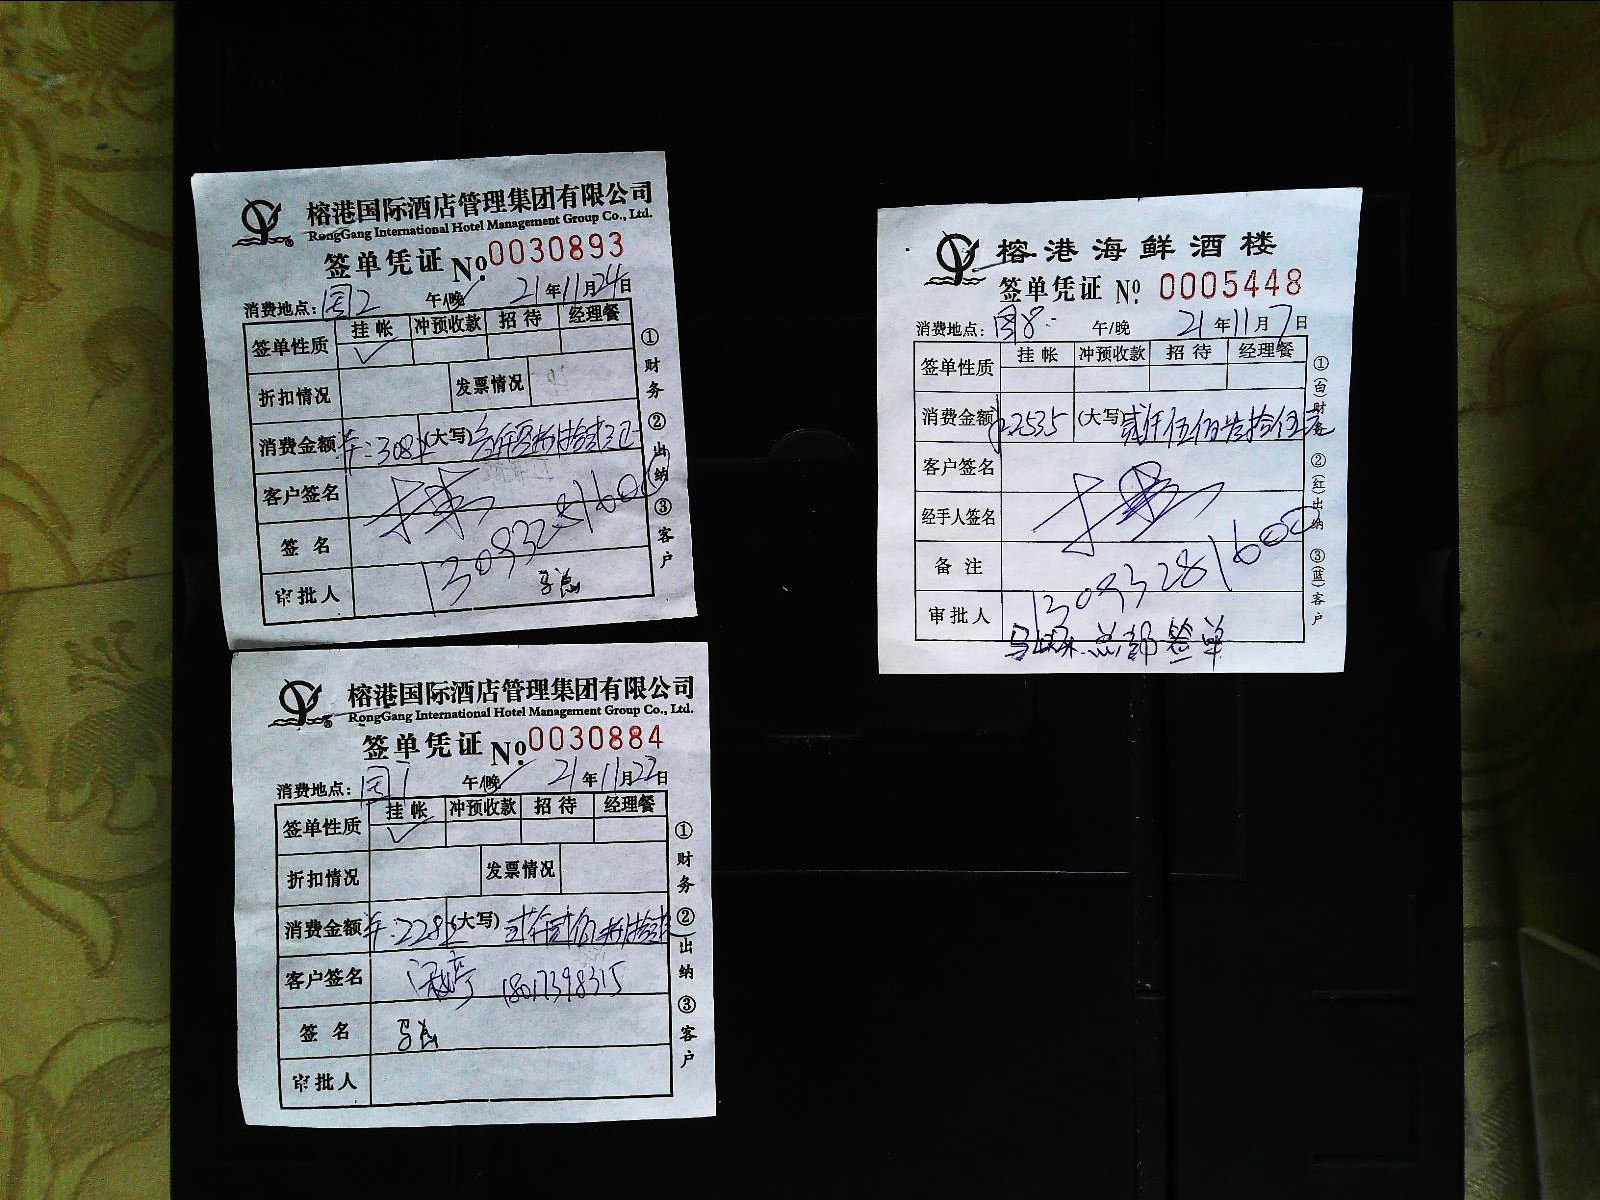 榕港国际酒店管理集团有限公司
RongGang International Hotel Management Group Co., Ltd.
签单凭证 No. 0030893
消费地点: 国2 午/晚 21年11月24日
签单性质 挂帐 冲预收款 招待 经理餐
✓
折扣情况 发票情况
消费金额 (大写)
客户签名
签名 13093281600
审批人 马总
①财务 ②出纳 ③客户
榕港国际酒店管理集团有限公司
RongGang International Hotel Management Group Co., Ltd.
签单凭证 No. 0030884
消费地点: 国 午/晚 21年11月22日
签单性质 挂帐 冲预收款 招待 经理餐
✓
折扣情况 发票情况
消费金额 (大写)
客户签名 18017398315
签名 马总
审批人
①财务 ②出纳 ③客户
榕港海鲜酒楼
签单凭证 No. 0005448
消费地点: 国8 午/晚 21年11月7日
签单性质 挂帐 冲预收款 招待 经理餐
消费金额 2535 (大写) 贰仟伍佰叁拾伍元
客户签名
经手人签名
备注 13093281600
审批人
总部签单
①(白)财务 ②(红)出纳 ③(蓝)客户